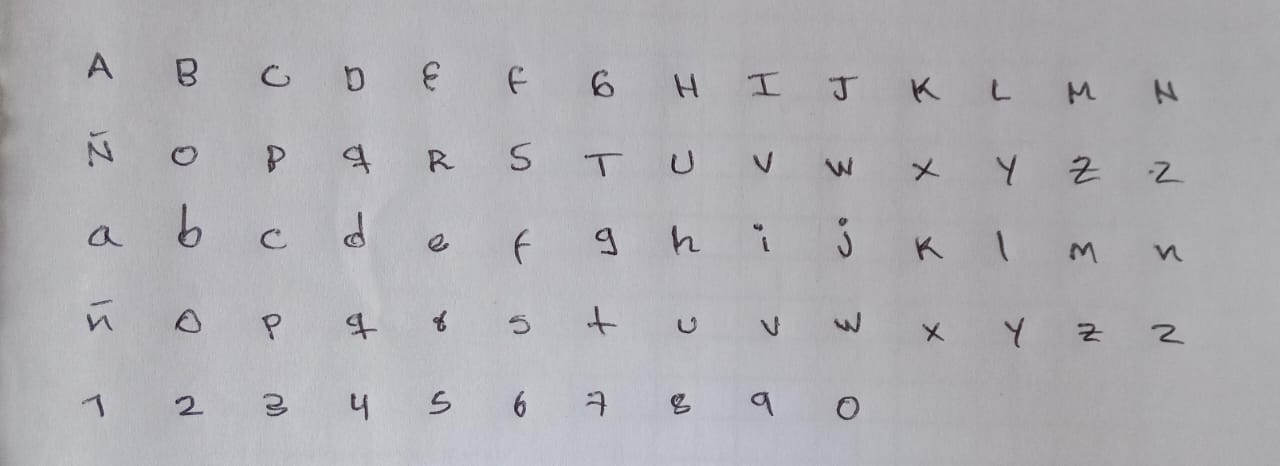 A B C D E F G H I J K L M N
Ñ O P q R S T U V W X Y Z Z
a b c d e f g h i j k l m n
ñ o p q r s t u v w x y z z
1 2 3 4 5 6 7 8 9 0